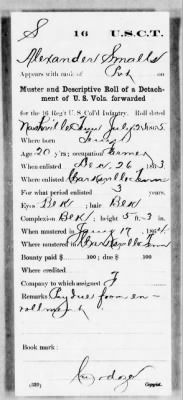 S 16 U.S.C.T.
Alexander Smalls
Appears with rank of Pvt on
Muster and Descriptive Roll of a Detach-
ment of U. S. Vols. forwarded
for the 16 Reg't U. S. Col'd Infantry. Roll dated
Nashville Tenn July 2, 1865.
Where born Tenn
Age 20 y'rs; occupation Farmer
When enlisted Dec. 26, 1863.
Where enlisted Clarksville Tenn
For what period enlisted 3 years.
Eyes Blk; hair Blk
Complexion Blk; height 5 ft. 3 in.
When mustered in Jany 17, 1864.
Where mustered in Clarksville Tenn
Bounty paid $ 100; due $ 100
Where credited
Company to which assigned F
Remarks: Pay due from en-
rollment
Book mark:
(339) Copyist.